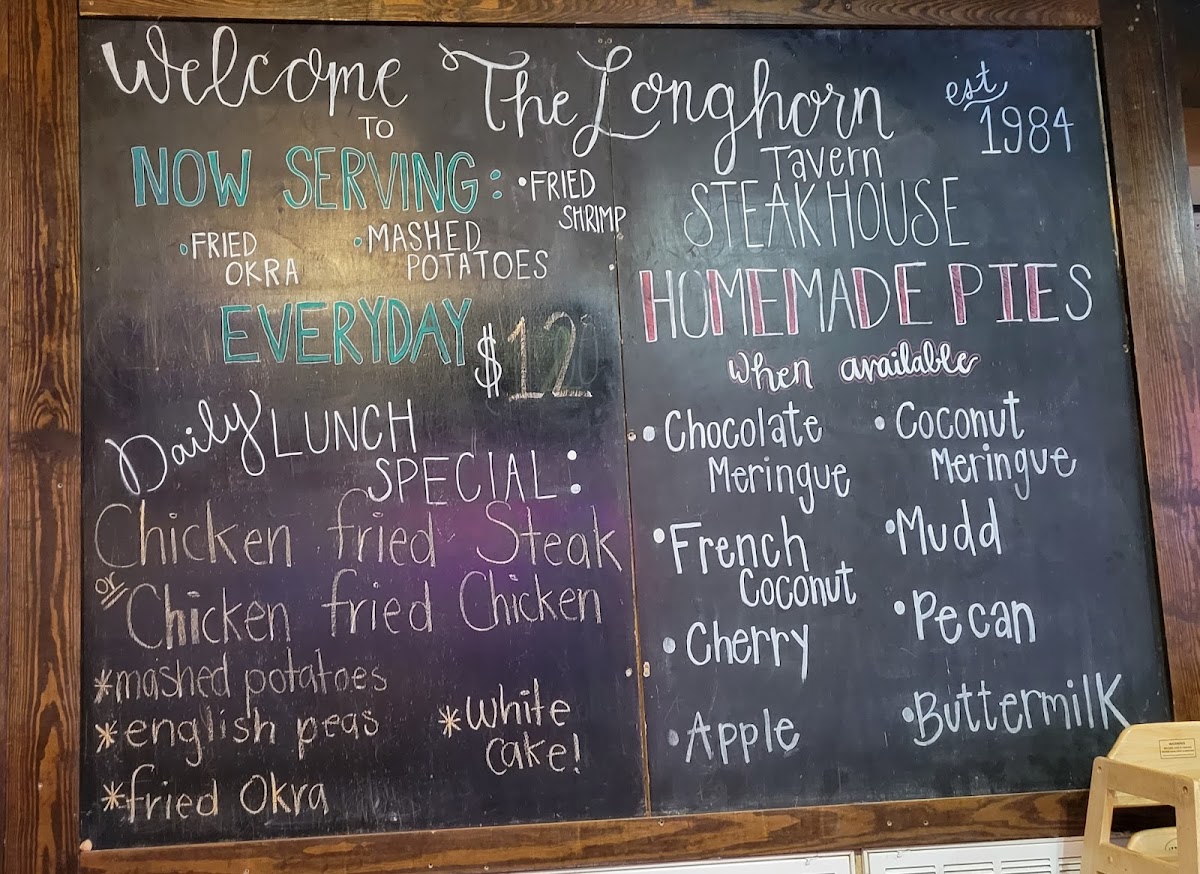 Welcome
TO
The Longhorn
est
1984
Tavern
STEAKHOUSE
NOW SERVING:
•FRIED
SHRIMP
•FRIED
OKRA
•MASHED
POTATOES
EVERYDAY
$12
Daily LUNCH
SPECIAL:
Chicken fried Steak
or
Chicken fried Chicken
*mashed potatoes
*english peas
*fried Okra
*White
Cake!
HOMEMADE PIES
when available
•Chocolate
Meringue
•French
Coconut
•Cherry
•Apple
•Coconut
Meringue
•Mudd
•Pecan
•Buttermilk